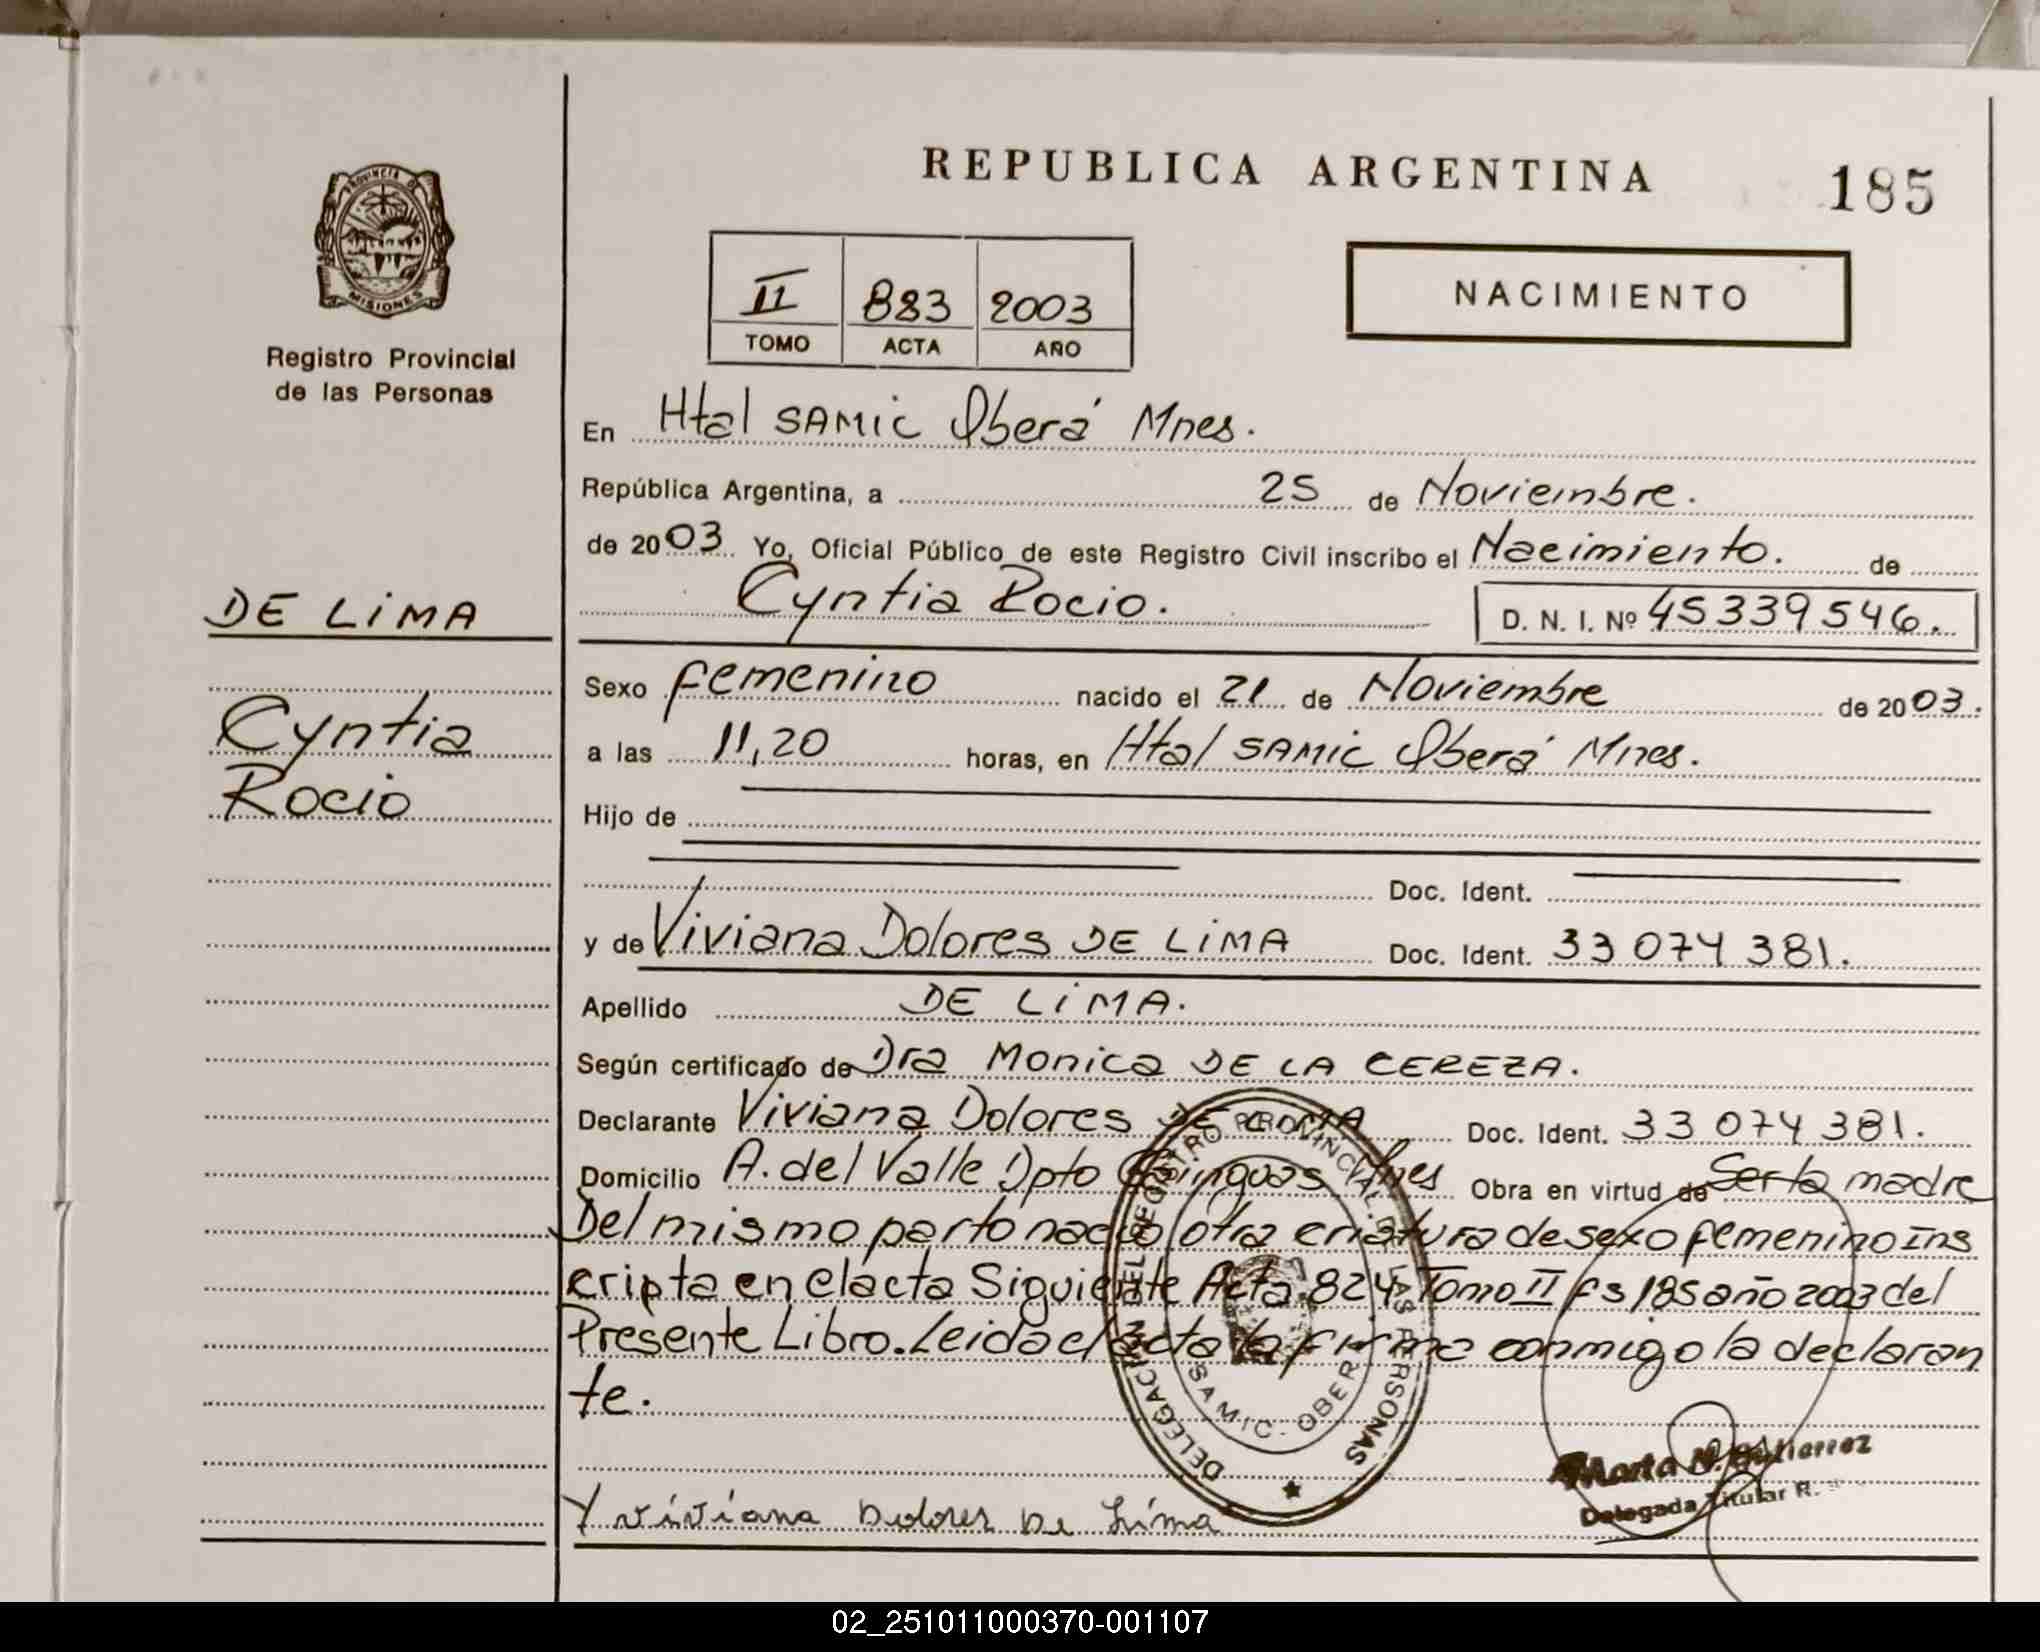 REPUBLICA ARGENTINA
185
PROVINCIA DE
MISIONES
Registro Provincial
de las Personas
II 883 2003
TOMO ACTA AÑO
NACIMIENTO
En Htal SAMIC Oberá Mnes.
República Argentina, a 25 de Noviembre.
de 2003 Yo, Oficial Público de este Registro Civil inscribo el Nacimiento. de
Cyntia Rocio. D. N. I. Nº 45339546.
DE LIMA
Cyntia
Rocio
Sexo femenino nacido el 21 de Noviembre de 2003.
a las 11,20 horas, en Htal SAMIC Oberá Mnes.
Hijo de
Doc. Ident.
y de Viviana Dolores DE LIMA Doc. Ident. 33 074 381.
Apellido DE LIMA.
Según certificado de Dra Monica DE LA CEREZA.
Declarante Viviana Dolores DE LIMA Doc. Ident. 33 074 381.
Domicilio A. del Valle Dpto Cainguas Mnes Obra en virtud de Ser la madre
Del mismo parto nacio otra criatura de sexo femenino Ins
cripta en el acta Siguiente Acta 824 Tomo II fs 185 año 2003 del
Presente Libro. Leida el acta la firma conmigo la declaran
te.
DELEGACION DEL REGISTRO PROVINCIAL DE LAS PERSONAS
SAMIC - OBERA
Marta N. Gutierrez
Delegada Titular R.
Viviana Dolores De Lima
02_251011000370-001107